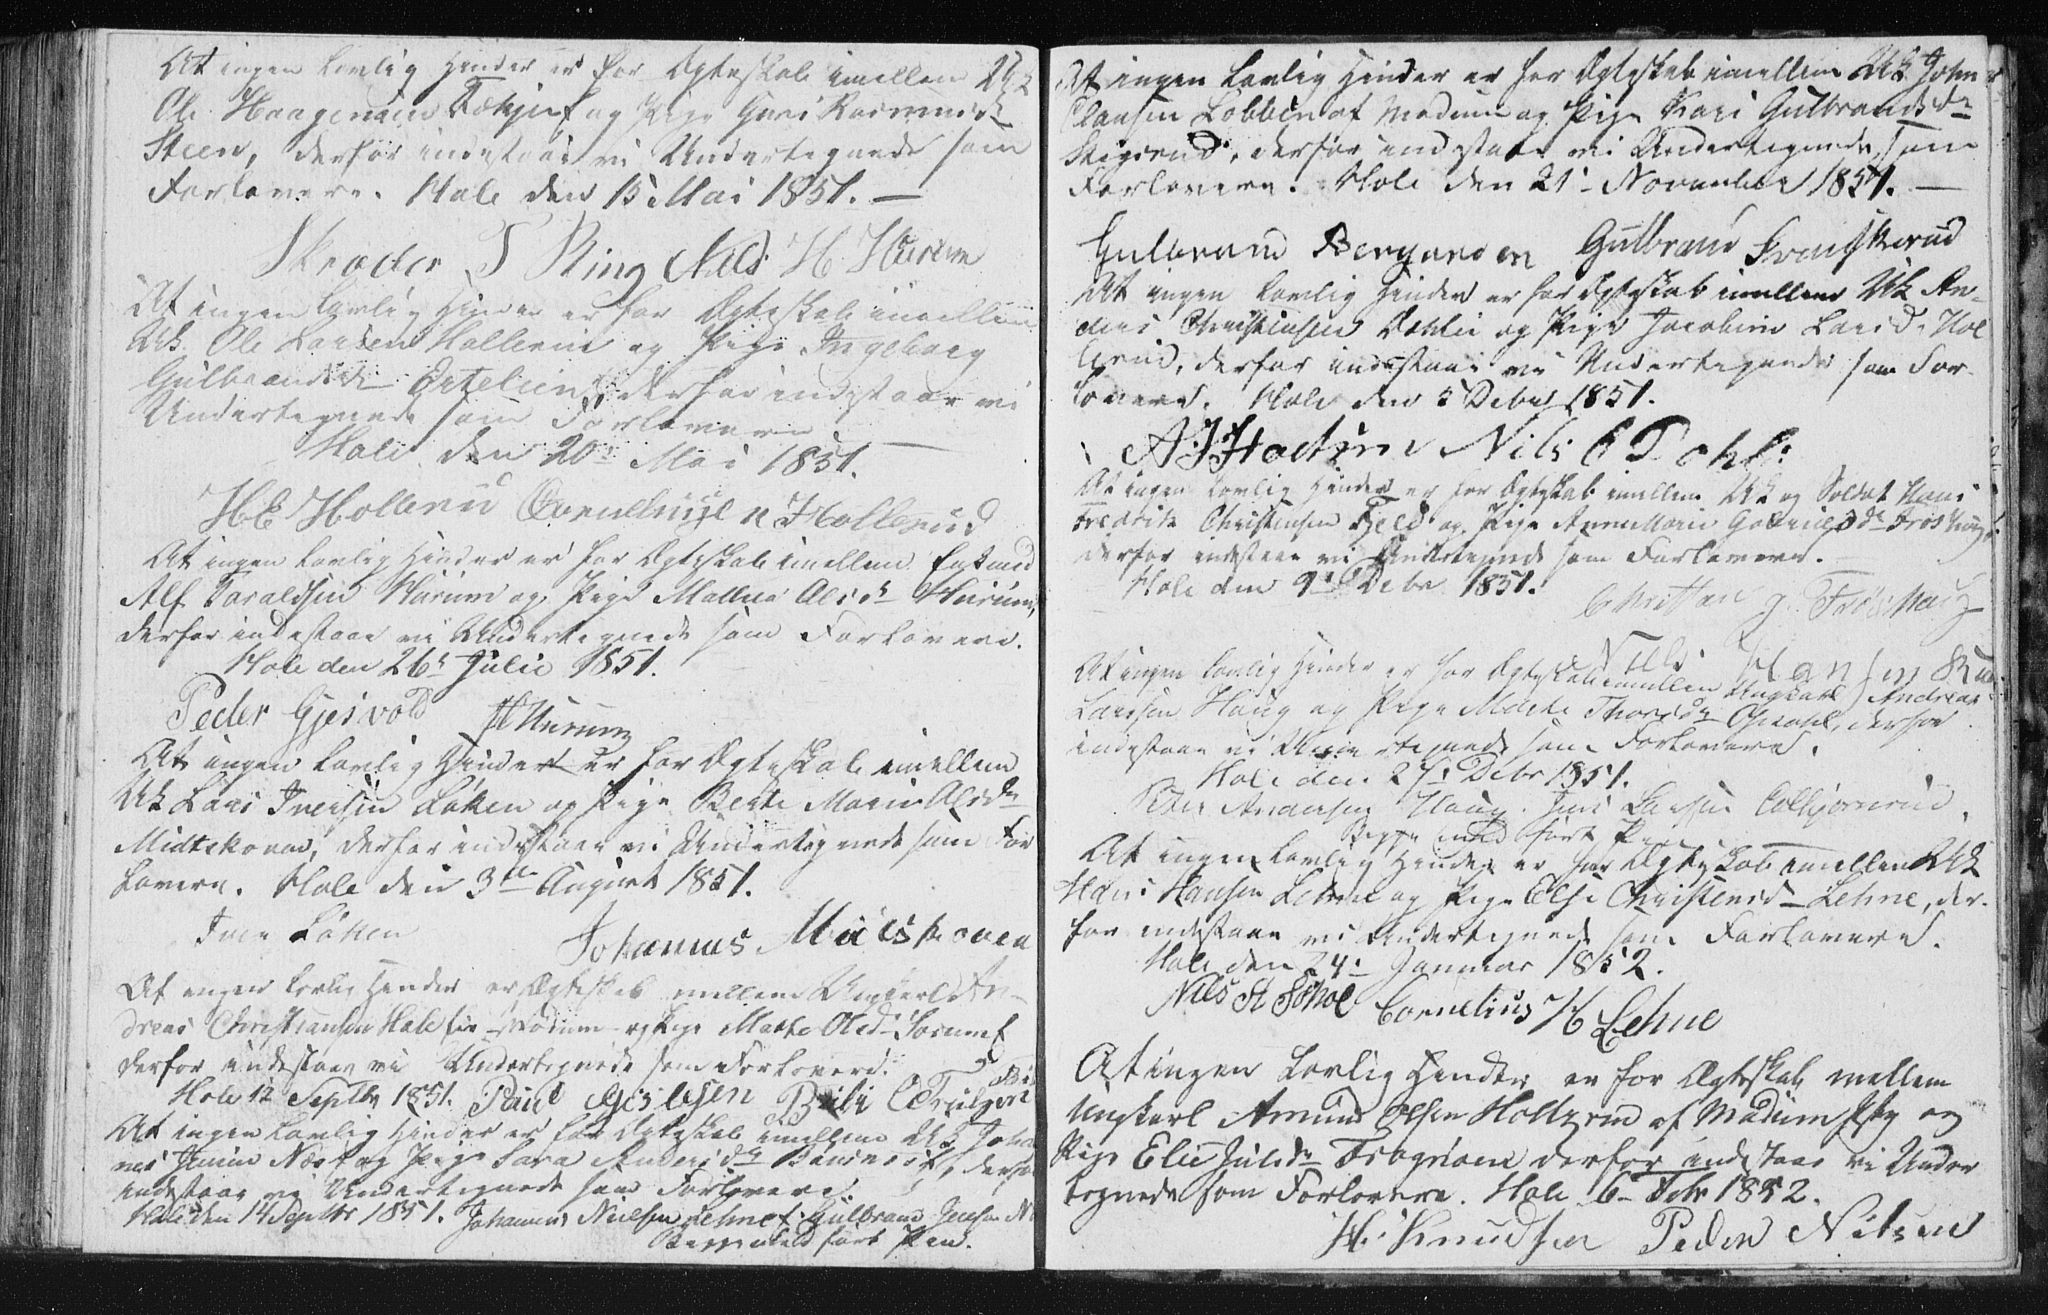 At ingen lovlig Hinder er for Ægteskab imellem Uk
Ole Haagensen og Pige Guri Rasmusd
Steen, derfor indestaae vi Undertegnede som
Forlovere. Hole den 15 Mai 1851. —
Skrøder T Ring Nils H Hurum
At ingen lovlig Hinder er for Ægteskab imellem
Uk. Ole Larsen Hollerud og Pige Ingeborg
Gulbrandsd derfor indestaae vi
Undertegnede som Forlovere —
Hole den 20 Mai 1851.
H E Hollerud Cornelius H Hollerud
At ingen lovlig Hinder er for Ægteskab imellem Enkemd
Alf Taraldsen Hurum og Pige Mallene Olsd Hurum,
derfor indestaae vi Undertegnede som Forlovere.
Hole den 26 Julie 1851.
Peder Gjesvold H Hurum
At ingen lovlig Hinder er for Ægteskab imellem
Uk Lars Iversen Løken og Pige Berte Marie Olsdr
Midtskoven, derfor indestaae vi Undertegnede som For
lovere. Hole den 3die August 1851.
Iver Løken Johannes Midtskoven
At ingen lovlig Hinder er Ægteskab mellem Ungkarl An-
dreas Christiansen Hole fra Modum og Pige Marthe Olsd
derfor indestaae vi Undertegnede som Forlovere.
Hole 12 Septbr 1851. Paul
At ingen lovlig Hinder er for Ægteskab imellem Uk Johan
nes Næs og Pige Sara Andersdr derfor
indestaae vi Undertegnede som Forlovere
Hole den 14 Septbr 1851. Johannes Nielsen Lehne Gulbrand Jensen
Begge med ført Pen.
At ingen lovlig Hinder er for Ægteskab imellem Uk John
Clausen Lobben af Modum og Pige Kari Gulbrandsdr
derfor indestaae vi Undertegnede som
Forlovere. Hole den 21 November 1851. —
Gulbrand Gulbrand
At ingen lovlig Hinder er for Ægteskab imellem Uk An-
ders Christensen Dahlie og Pige Jacobine Larsd. Hol
lerud, derfor indestaae vi Undertegnede som For-
lovere. Hole den 5 Debr 1851.
Nils C Dahli
At ingen lovlig Hinder er for Ægteskab imellem Uk og Soldat Hans
Fredrik Christensen Fjeld og Pige Anne Marie Gabrielsdr Frøshaug
derfor indestaae vi Undertegnede som Forlovere.
Hole den 9 Debr 1851.
Christian G. Frøshaug
Nils Hansen
At ingen lovlig Hinder er for Ægteskab imellem Ungkarl Andreas
Larsen Haug og Pige Marte Thorsdr derfor
indestaae vi Undertegnede som Forlovere.
Hole den 27 Debr 1851.
Peder Andersen Haug. Jens Larsen
Begge med ført Pen
At ingen lovlig Hinder er for Ægteskab imellem Uk
Hans Hansen Lehne og Pige Else Christensd Lehne, der-
for indestaae vi Undertegnede som Forlovere.
Hole den 24 Januar 1852.
Nils Cornelius H Lehne
At ingen Lovlig Hinder er for Ægteskab mellem
Ungkarl Amund Olsen af Modum og
Pige Elie Julsdr derfor indestaae vi Under
tegnede som Forlovere. Hole 6 Febr 1852.
H. Knudsen Peder Nilsen